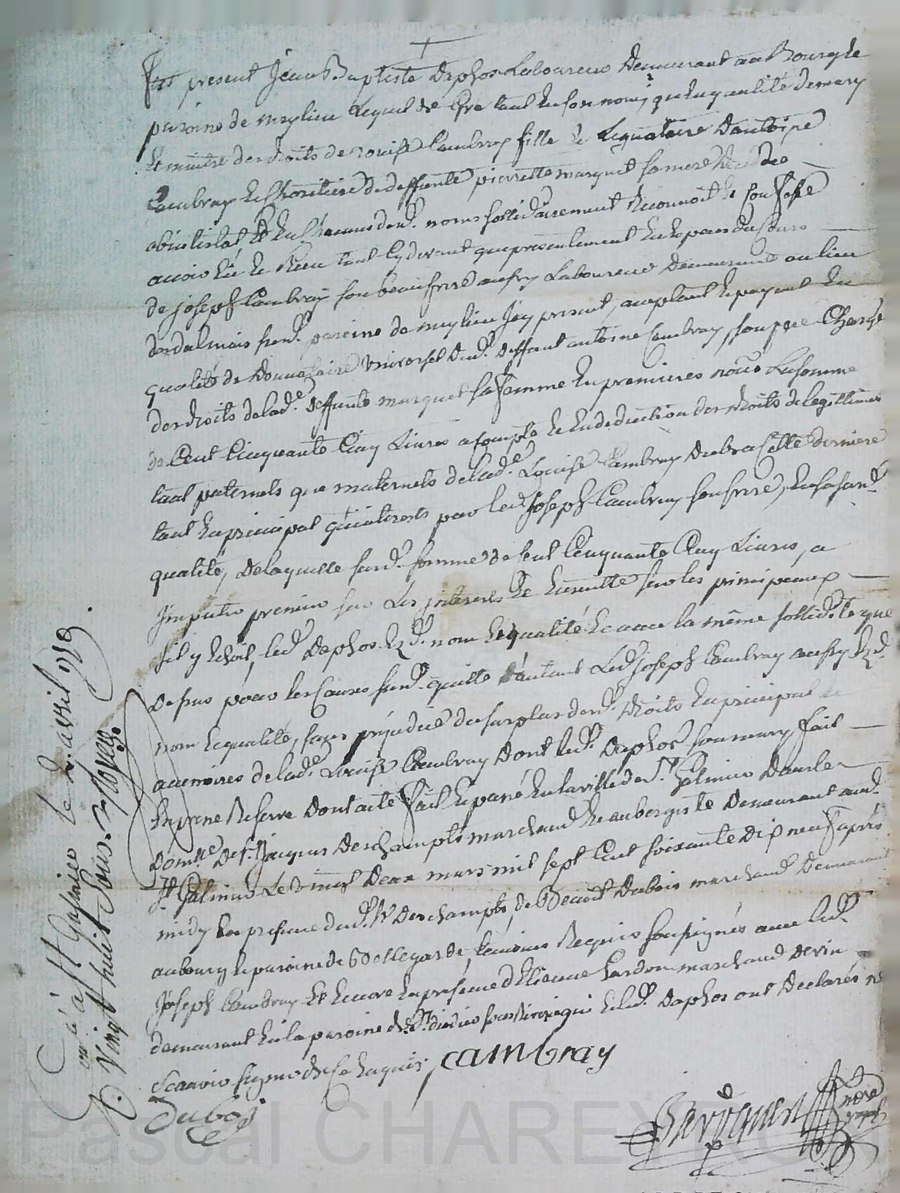 fut present Jean Baptiste Dephos Laboureur demeurant au Bourg et
paroise de meylieu Lequel de Gré tant en son nom qu'en qualité de mary
Et maitre des droits de Louise Cambray fille et Legataire d'antoine
Cambray Et heritiere de deffunte pierrette marquet sa mere
abintistat Et en d. noms sollidairement Reconnoit Et Confesse
avoir heü et Receu tant Cy devant que presentement en Espaces du Cours
de joseph Cambray son beau frere aussy Laboureur demeurant au lieu
des dalmais susd. paroise de meylieu Jcy present, aceptant Et payant En
qualité de Donnataire Universel dud. deffunt antoine Cambray son pere Chargé
des droits de lad. deffunte marquet sa femme En premieres noces La somme
de Cent Cinquante Cinq Livres a Compte Et En deduction des droits de legittimes
tant paternels que maternels de lad. Louise Cambray dubs a Cette derniere
tant En principal qu'interets par led. Joseph Cambray son frere, En sa susd.
qualité, De laquelle susd. somme de Cent Cinquante Cinq Livres, a
Jmputer premier sur Les jnterets Et Ensuitte sur les principaux
s'il y Echoit, led. Dephos Esd. nom Et qualité Et avec la même sollidité que
dessus pour les Causes susd. quitte d'autant Led. Joseph Cambray aussy Esd.
nom Et qualité, sans prejudice du surplus desd. droits En principal et
accessoires de lad. Louise Cambray Dont led. Dephos son mary fait
Expresse Reserve Dont acte fait Et passé En la ville de St. Galmier Dans le
domlle de s. Jacques Deschampts marchand Et aubergiste Demeurant aud.
St. Galmier Le vingt deux mars mil sept Cent soixante dix neuf apres
midy En presence dud. Sr. Deschampts, de Benoit Dubois marchand demeurant
au bourg Et paroise de Bellegarde, temoins Requis soussignés avec led.
Joseph Cambray Et Encore En presence d'Etienne Pardon marchand de vin
demeurant En la paroise de qui Et led. Dephos ont Declarés ne
scavoir signer de Ce Enquis, Cambray
Dubois
Con.lé à St. Galmier le 2 avril 1779.
R. Vingt huit sous
Pascal CHAREYRON